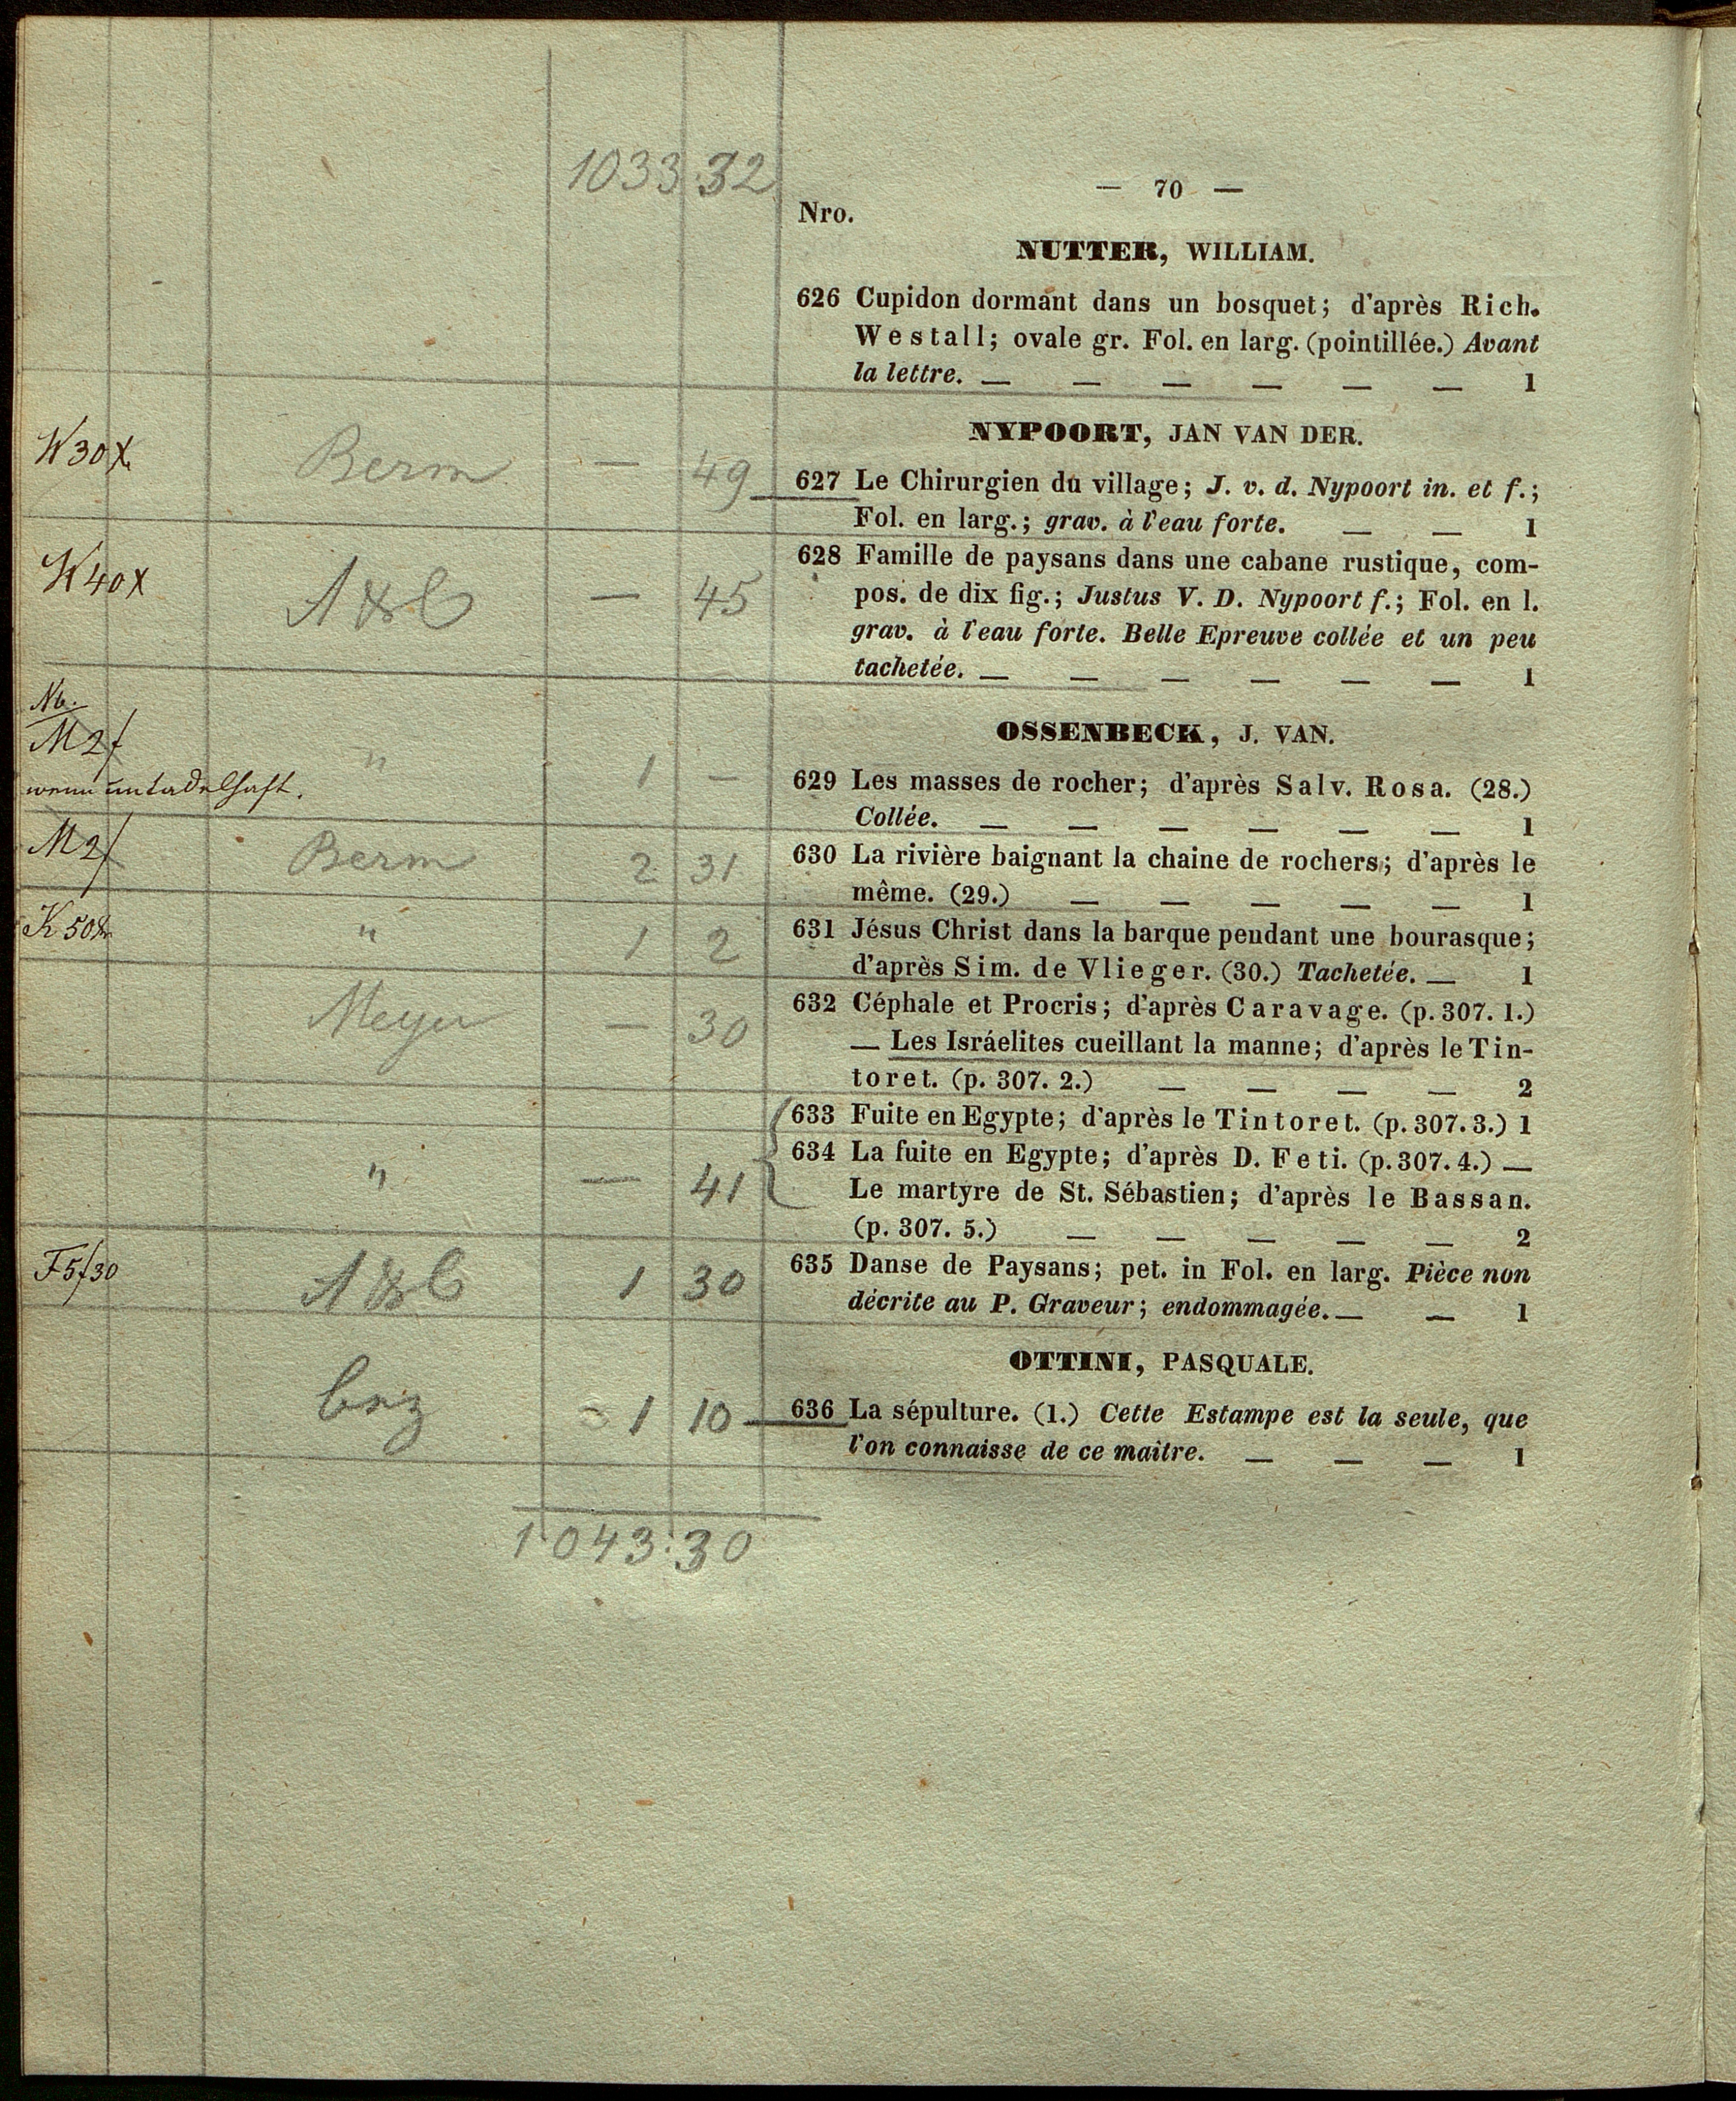 1033 32
— 70 —
Nro.
NUTTER, WILLIAM.
626 Cupidon dormant dans un bosquet; d'après Rich.
Westall; ovale gr. Fol. en larg. (pointillée.) Avant
la lettre. — — — — — — 1
NYPOORT, JAN VAN DER.
W30x Berm — 49
627 Le Chirurgien du village; J. v. d. Nypoort in. et f.;
Fol. en larg.; grav. à l'eau forte. — — 1
W40x — 45
628 Famille de paysans dans une cabane rustique, com-
pos. de dix fig.; Justus V. D. Nypoort f.; Fol. en l.
grav. à l'eau forte. Belle Epreuve collée et un peu
tachetée. — — — — — — 1
OSSENBECK, J. VAN.
Nb.
M2f " 1 —
wenn untadelhaft.
629 Les masses de rocher; d'après Salv. Rosa. (28.)
Collée. — — — — — — 1
M2f Berm 2 31
630 La rivière baignant la chaine de rochers; d'après le
même. (29.) — — — — — 1
K50x " 1 2
631 Jésus Christ dans la barque pendant une bourasque;
d'après Sim. de Vlieger. (30.) Tachetée. — 1
Meyer — 30
632 Céphale et Procris; d'après Caravage. (p. 307. 1.)
— Les Isráelites cueillant la manne; d'après le Tin-
toret. (p. 307. 2.) — — — — 2
633 Fuite en Egypte; d'après le Tintoret. (p. 307. 3.) 1
" — 41
634 La fuite en Egypte; d'après D. Feti. (p. 307. 4.) —
Le martyre de St. Sébastien; d'après le Bassan.
(p. 307. 5.) — — — — — 2
F5f30 1 30
635 Danse de Paysans; pet. in Fol. en larg. Pièce non
décrite au P. Graveur; endommagée. — — 1
OTTINI, PASQUALE.
1 10
636 La sépulture. (1.) Cette Estampe est la seule, que
l'on connaisse de ce maitre. — — — 1
1043:30